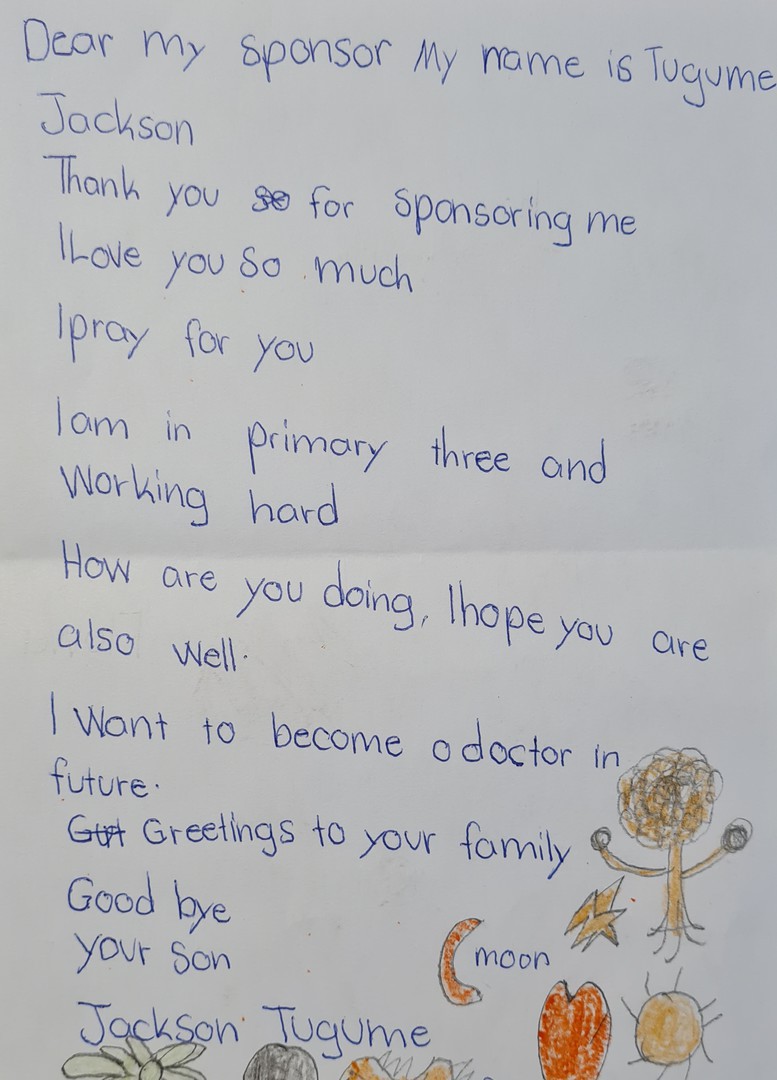 Dear my sponsor My name is Tugume
Jackson
Thank you so for sponsoring me
I Love you so much
I pray for you
I am in primary three and
Working hard
How are you doing, I hope you are
also well.
I Want to become a doctor in
future.
Gut Greetings to your family
Good bye
your son
moon
Jackson Tugume